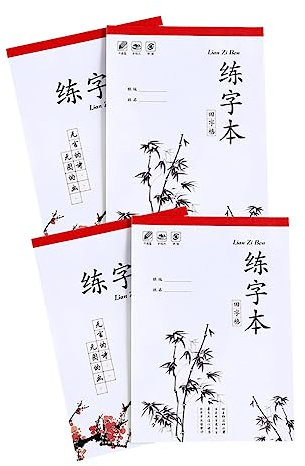 练字本
Lian Zi
无言的诗
无图的画
Lian Zi Ben
练字本
田字格
班级
姓名
练字本
Lian Zi
无言的诗
无图的画
Lian Zi Ben
练字本
田字格
班级
姓名